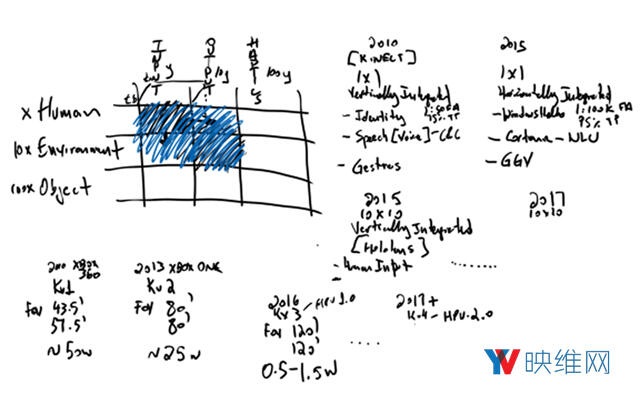 INPUT
OUTPUT
y
10y
100y
x Human
10x Environment
100x Object
2010
[KINECT]
1x1
Vertically Integrated
- Identity
- Speech [Voice] - C&C
- Gestures
2015
1x1
Horizontally Integrated
- Windows Hello 1:100K FA
95% TP
- Cortana - NLU
- GGV
2015
10x10
Vertically Integrated
[Hololens]
- Human Input
-
........
2017
10x10
XBOX
360
Kv1
FoV 43.5°
57.5°
~50w
2013 XBOX ONE
Kv2
FoV 80°
80°
~25w
2016
Kv3 - HPU 1.0
FoV 120°
120°
0.5-1.5W
....
2017+
Kv4 - HPU.2.0
YV 映维网